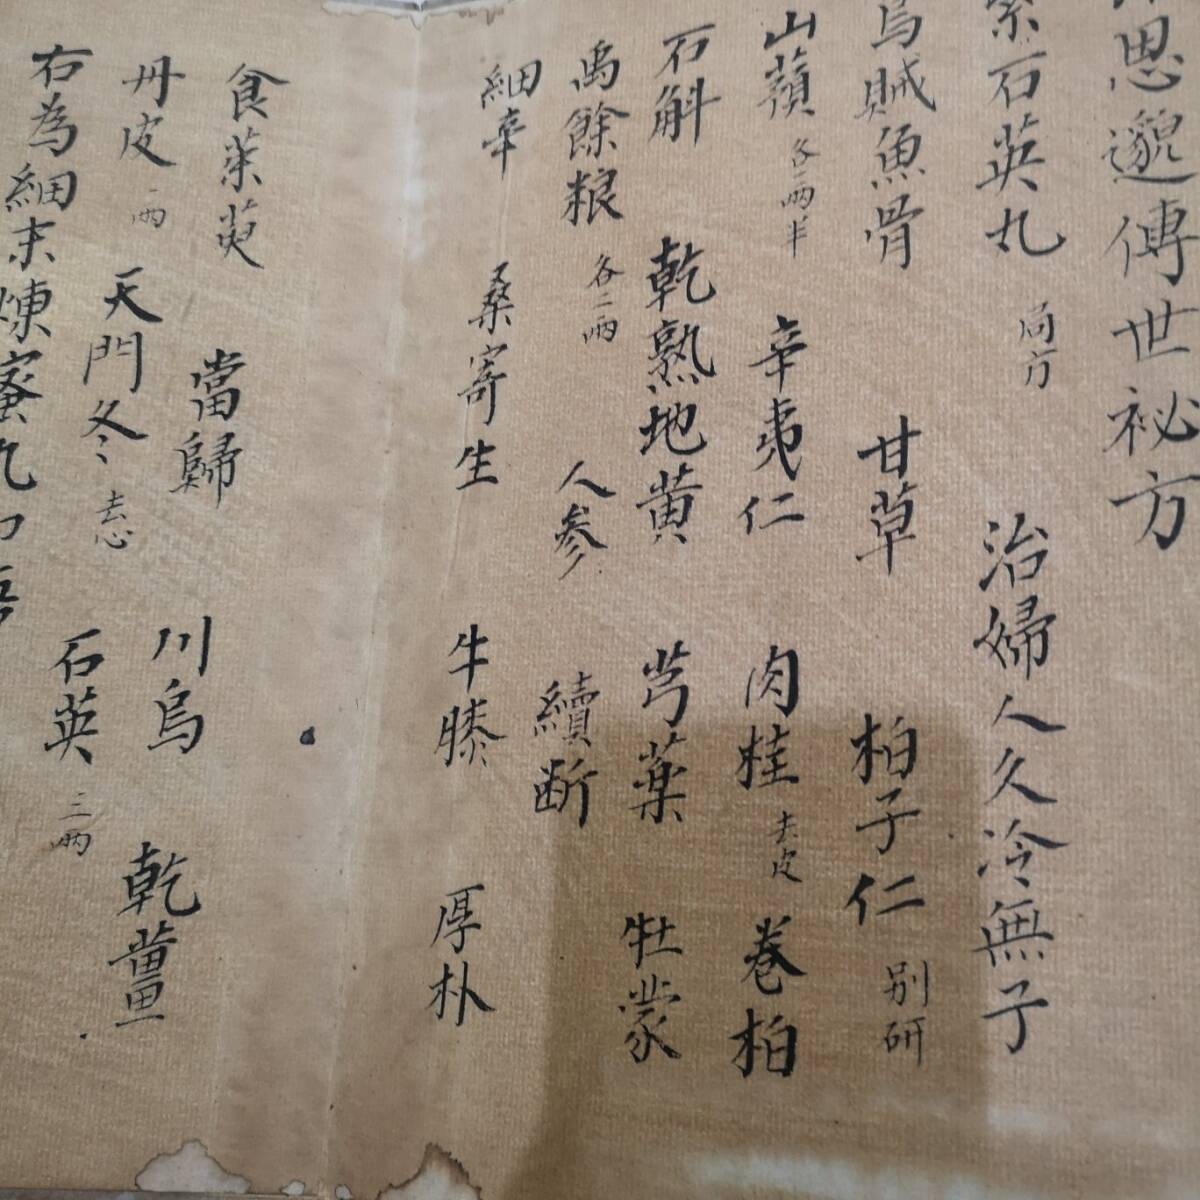 思邈傳世祕方
紫石英丸 局方 治婦人久冷無子
烏賊魚骨 甘草 柏子仁 别研
山蘋 各一兩半 辛夷仁 肉桂 去皮 卷柏
石斛 乾熟地黄 芎藥 牡蒙
禹餘粮 各二兩 人参 續断
細辛 桑寄生 牛膝 厚朴
食茱萸 當歸 川烏 乾薑
丹皮 一兩 天門冬 去心 石英 三兩
右為細末煉蜜丸